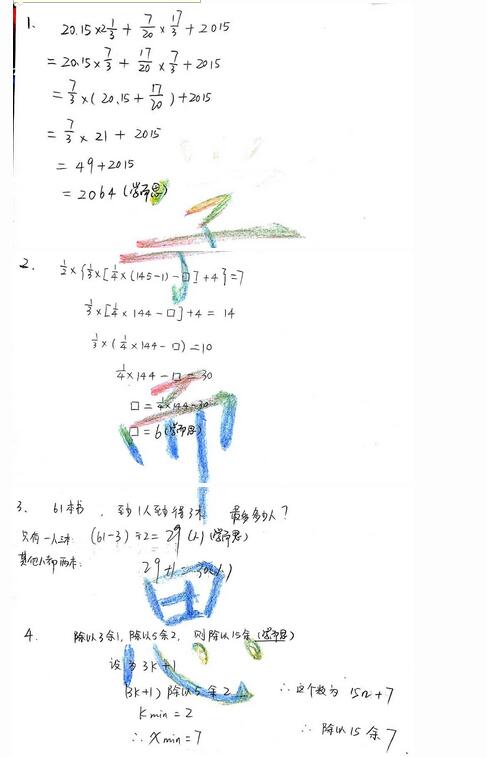 1. 20.15×2 1/3 + 7/20 × 17/3 + 2015
= 20.15 × 7/3 + 17/20 × 7/3 + 2015
= 7/3 × (20.15 + 17/20) + 2015
= 7/3 × 21 + 2015
= 49 + 2015
= 2064 (学而思)
学而思
2. 1/2 × {1/3 × [1/4 × (145-1) - □] + 4} = 7
1/3 × [1/4 × 144 - □] + 4 = 14
1/3 × (1/4 × 144 - □) = 10
1/4 × 144 - □ = 30
□ = 1/4 × 144 - 30
□ = 6 (学而思)
3. 61本书, 至少1人至少得3本 最多多少人?
只有一人3本: (61-3) ÷ 2 = 29 (人) (学而思)
其他人都两本: 29+1 = 30(人)
4. 除以3余1, 除以5余2, 则除以15余 (学而思)
设为 3k+1
(3k+1) 除以5余2 ∴ 这个数为 15n+7
k min = 2
∴ x min = 7 ∴ 除以15余7